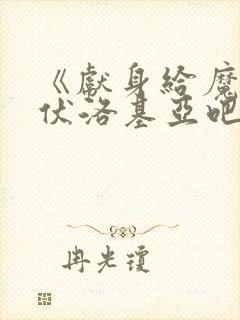 《獻身給魔
伏洛基亞吧
冉光瓊